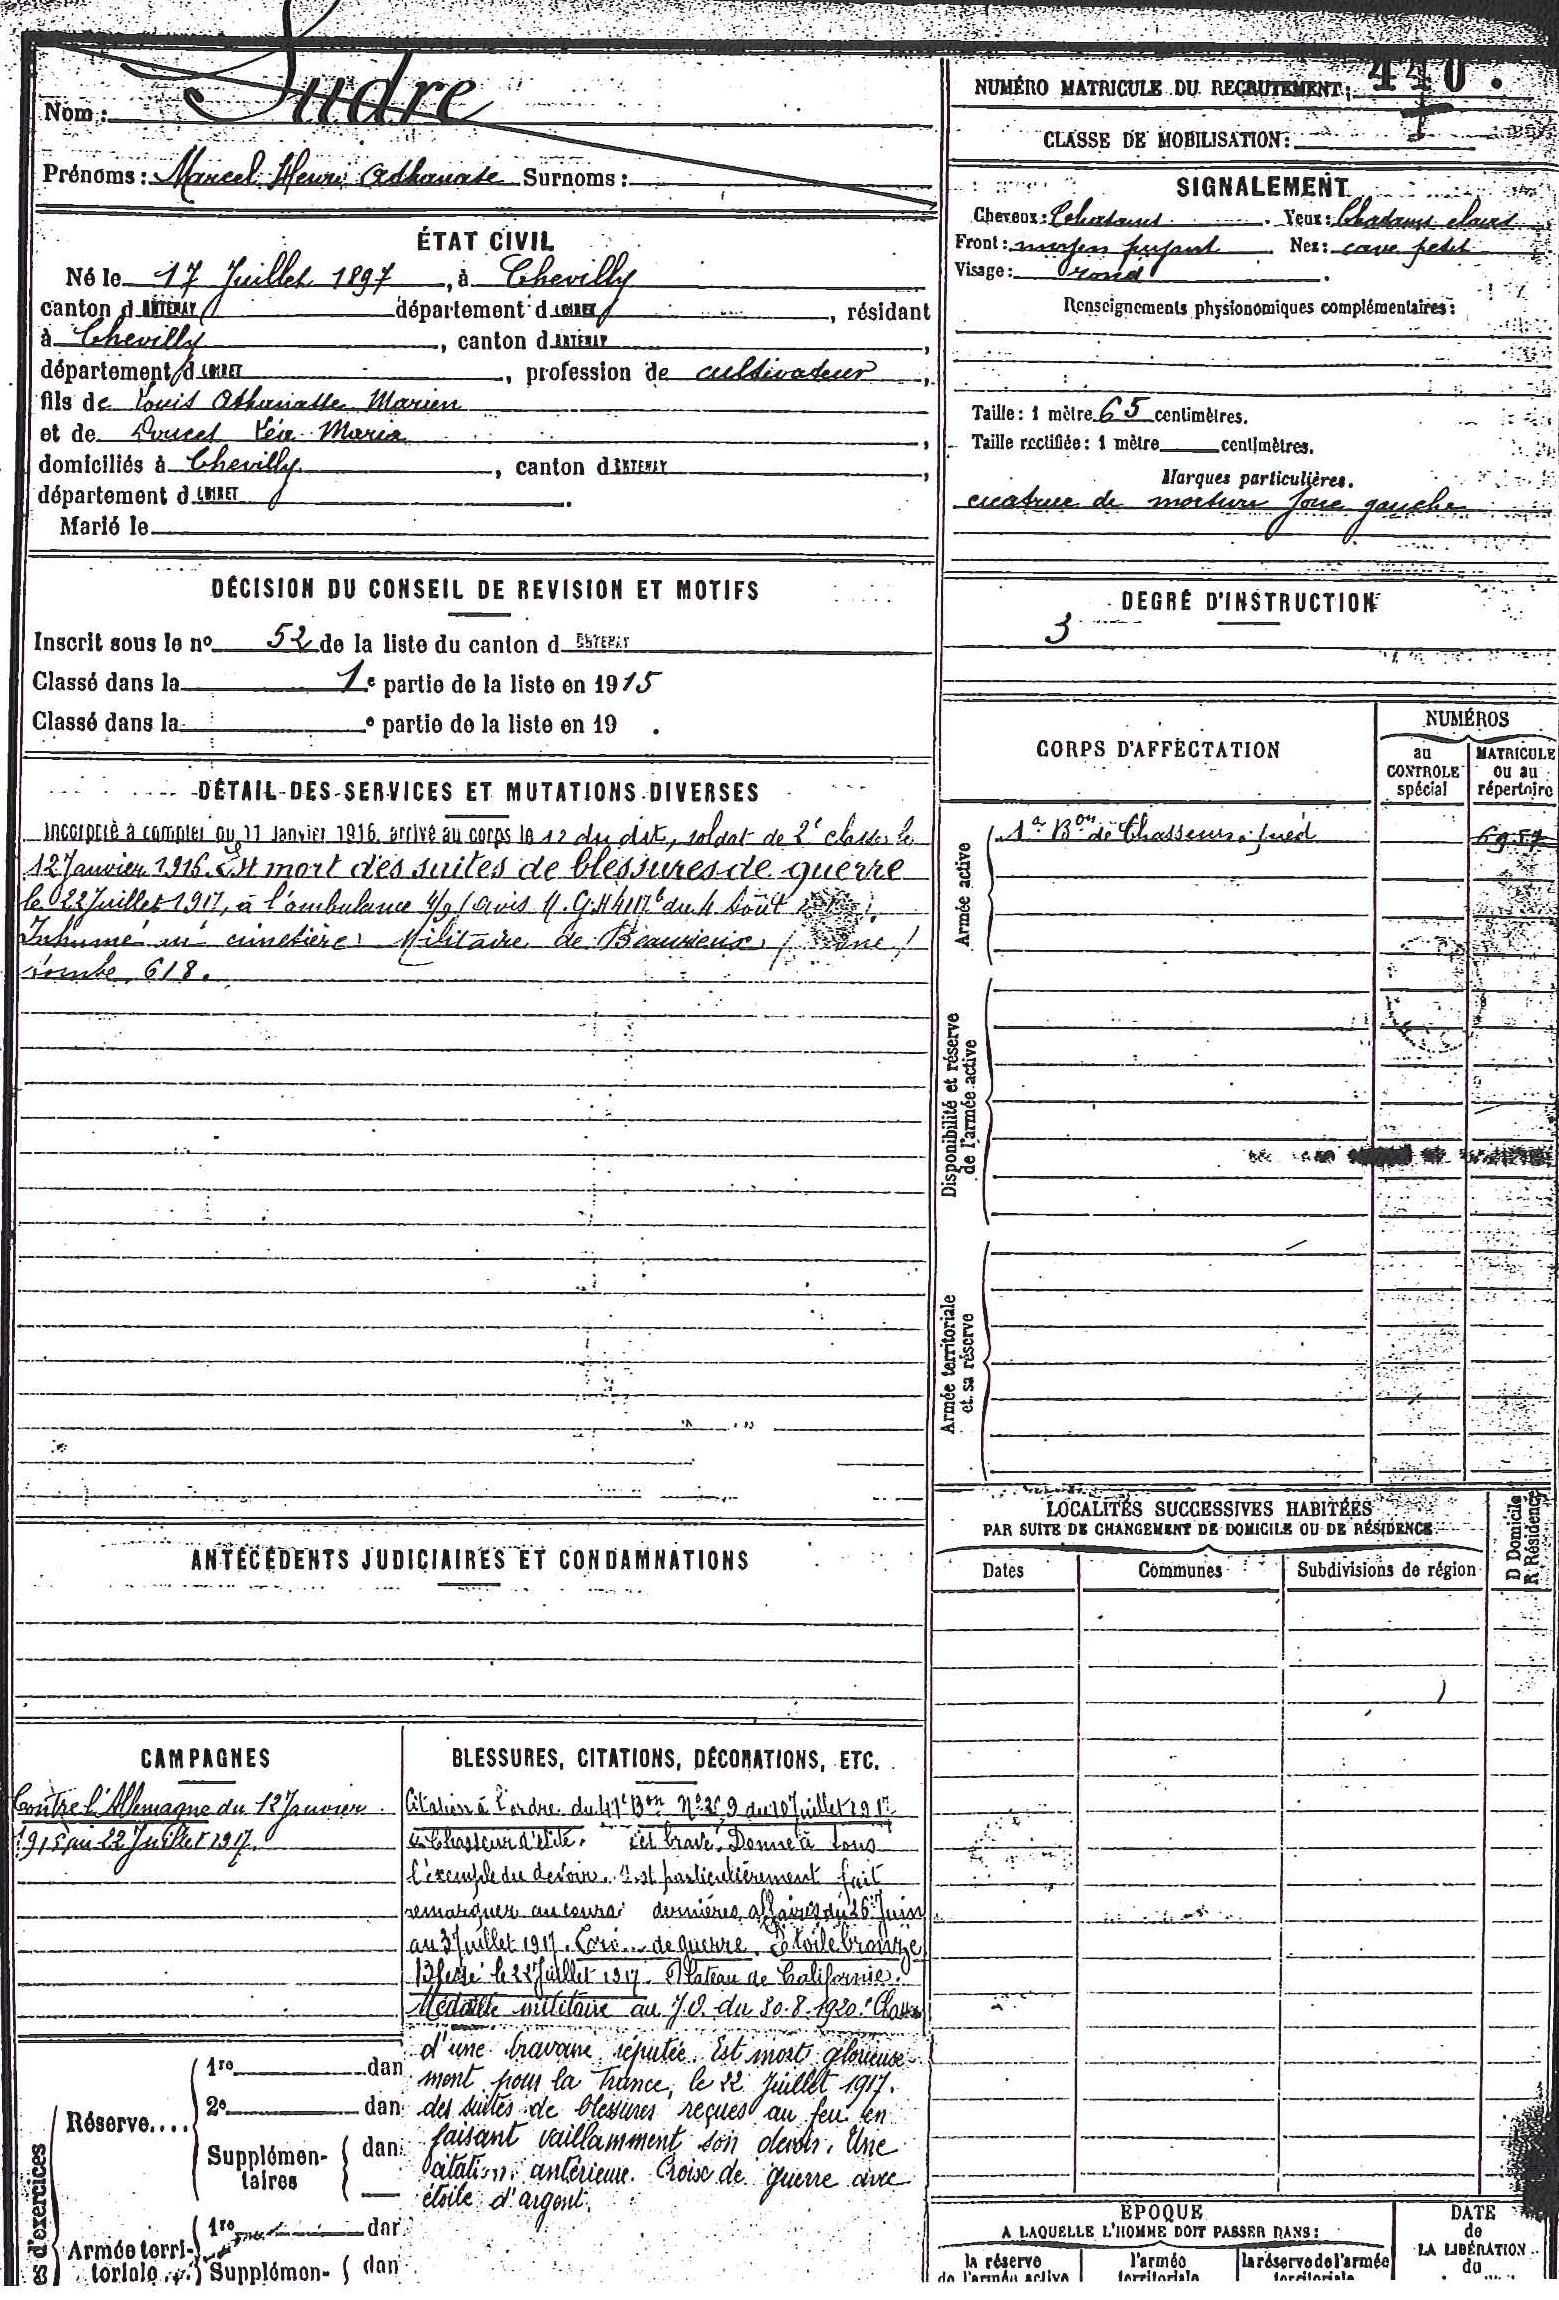 Nom : Sudre
Prénoms : Marcel Henri Athanase Surnoms :
ÉTAT CIVIL
Né le 17 Juillet 1897, à Chevilly
canton d ARTENAY département d LOIRET, résidant
à Chevilly, canton d ARTENAY,
département d LOIRET, profession de cultivateur,
fils de Louis Athanasse Marien
et de Doucet Maria,
domiciliés à Chevilly, canton d ARTENAY,
département d LOIRET.
Marié le
DÉCISION DU CONSEIL DE REVISION ET MOTIFS
Inscrit sous le no 52 de la liste du canton d ARTENAY
Classé dans la 1e partie de la liste en 1915
Classé dans la e partie de la liste en 19 .
DÉTAIL DES SERVICES ET MUTATIONS DIVERSES
Incorporé à compter du 11 Janvier 1916 arrivé au corps le 12 du dit, soldat de 2e classe le
12 Janvier 1916. Est mort des suites de blessures de guerre
le 22 Juillet 1917, à l'ambulance (avis du 4 Août
Inhumé cimetière Militaire de Beaurieux
tombe 618.
ANTÉCÉDENTS JUDICIAIRES ET CONDAMNATIONS
CAMPAGNES
Contre l'Allemagne du 12 Janvier
1915 au 22 Juillet 1917.
BLESSURES, CITATIONS, DÉCORATIONS, ETC.
Citation à l'ordre du Bon du 10 Juillet 1917
"Chasseur d'élite. brave. Donne à tous
l'exemple du devoir. S'est particulièrement fait
remarquer au cours dernières affaires du 26 Juin
au 3 Juillet 1917. de guerre. Étoile bronze
Blessé le 22 Juillet 1917. Plateau de Californie.
Médaille militaire au J.O. du 30.8.1920.
d'une bravoure réputée. Est mort glorieuse-
ment pour la France, le 22 Juillet 1917.
des suites de blessures reçues au feu en
faisant vaillamment son devoir. Une
citation antérieure. Croix de guerre avec
étoile d'argent.
es d'exercices
Réserve....
1re dan
2e dan
Supplémen-
taires
dan
Armée terri-
toriale
1re dan
Supplémen- dan
NUMÉRO MATRICULE DU RECRUTEMENT : 440.
CLASSE DE MOBILISATION :
SIGNALEMENT
Cheveux : Chatains. Yeux : Chatains clairs
Front : moyen fuyant Nez : cave petit
Visage : rond.
Renseignements physionomiques complémentaires :
Taille : 1 mètre 65 centimètres.
Taille rectifiée : 1 mètre centimètres.
Marques particulières.
cicatrice de morsure joue gauche
DEGRÉ D'INSTRUCTION
3
CORPS D'AFFECTATION
NUMÉROS
au
CONTROLE
spécial
MATRICULE
ou au
répertoire
Armée active
Bon de Chasseurs à pied
Disponibilité et réserve
de l'armée active
Armée territoriale
et sa réserve
LOCALITÉS SUCCESSIVES HABITÉES
PAR SUITE DE CHANGEMENT DE DOMICILE OU DE RÉSIDENCE
D Domicile
R Résidence
Dates Communes Subdivisions de région
ÉPOQUE
A LAQUELLE L'HOMME DOIT PASSER DANS :
la réserve
de l'armée active
l'armée
territoriale
la réserve de l'armée
territoriale
DATE
de
LA LIBÉRATION
du